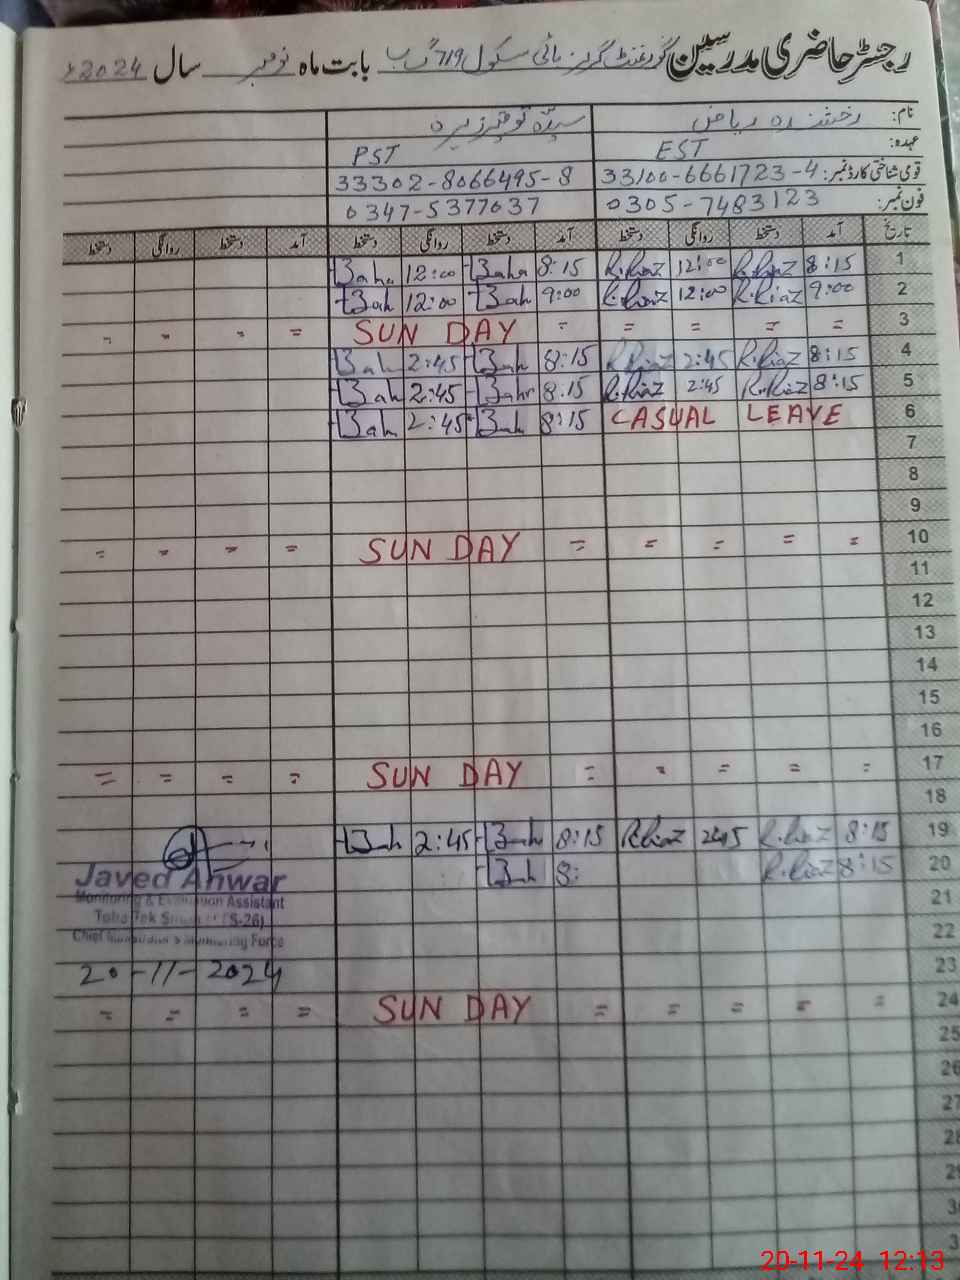 رجسٹر حاضری مدرسین گورنمنٹ گرلز ہائی سکول 719 گ ب بابت ماہ نومبر سال 2024ء
نام: رخشندہ ریاض سیدہ
عہدہ: EST PST
قومی شناختی کارڈ نمبر: 33100-6661723-4 33302-8066495-8
فون نمبر: 0305-7483123 0347-5377037
تاریخ آمد دستخط روانگی دستخط آمد دستخط روانگی دستخط آمد دستخط روانگی دستخط
1 8:15 R.Riaz 12:00 R.Riaz 8:15 12:00
2 9:00 R.Riaz 12:00 R.Riaz 9:00 12:00
3 = = = = = SUN DAY = = = =
4 8:15 R.Riaz 2:45 R.Riaz 8:15 2:45
5 8:15 R.Riaz 2:45 R.Riaz 8:15 2:45
6 CASUAL LEAVE 8:15 2:45
7
8
9
10 = = = = = SUN DAY = = = =
11
12
13
14
15
16
17 = = = = = SUN DAY = = = =
18
19 8:15 R.Riaz 2:45 R.Riaz 8:15 2:45
20 8:15 R.Riaz 8:
Javed Anwar
21
Monitoring & Evaluation Assistant
Toba Tek (S-26)
22
Chief Monitoring Force
23
20-11-2024
24 = = = = = SUN DAY = = = =
25
26
27
28
29
20-11-24 12:13